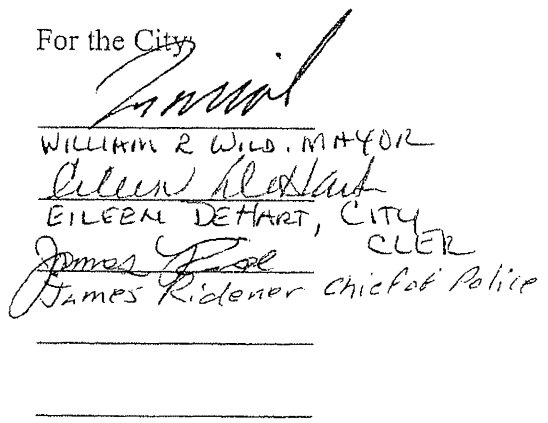 For the City:
WILLIAM R WILD. MAYOR
Eileen DeHart
EILEEN DEHART, CITY
CLER
James
James Ridener Chief of Police